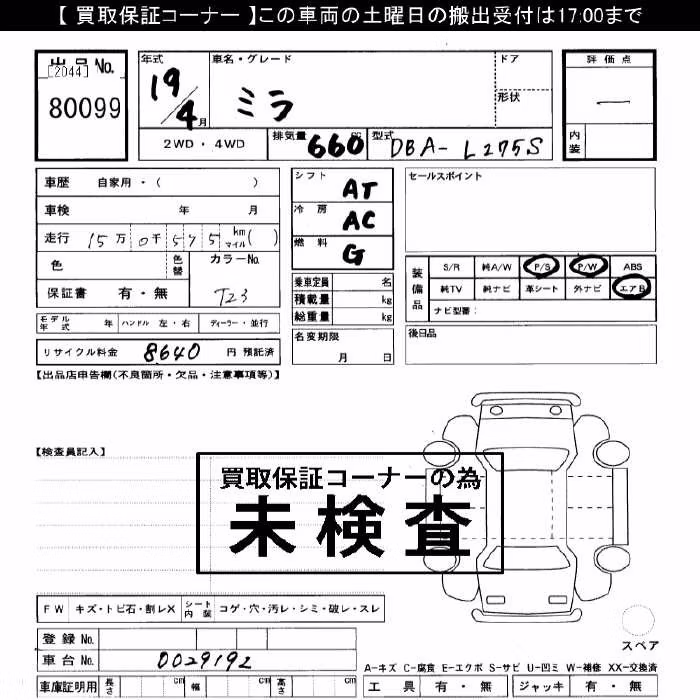 【 買取保証コーナー 】この車両の土曜日の搬出受付は17:00まで
出品 No.
[2044]
80099
年式
19/4月
車名・グレード
ミラ
ドア
形状
評価点
—
内装
2WD・4WD
排気量 660 cc
型式 DBA-L275S
車歴 自家用・( )
車検 年 月
走行 15万0千575 km マイル( )
色
色替
カラーNo.
T23
保証書 有・無
モデル年式 年 ハンドル 左・右 ディーラー・並行
リサイクル料金 8640 円 預託済
シフト AT
冷房 AC
燃料 G
乗車定員 名
積載量 kg
総重量 kg
名変期限
月 日
セールスポイント
装備品
S/R 純A/W P/S P/W ABS
純TV 純ナビ 革シート 外ナビ エアB
ナビ型番:
後日品
【出品店申告欄(不良箇所・欠品・注意事項等)】
【検査員記入】
買取保証コーナーの為
未検査
FW キズ・トビ石・割レX シート内装 コゲ・穴・汚レ・シミ・破レ・スレ
登録 No.
車台 No. 0029192
車庫証明用 長さ cm 幅 cm 高さ cm
スペア
A-キズ C-腐食 E-エクボ S-サビ U-凹ミ W-補修 XX-交換済
工具 有・無 ジャッキ 有・無